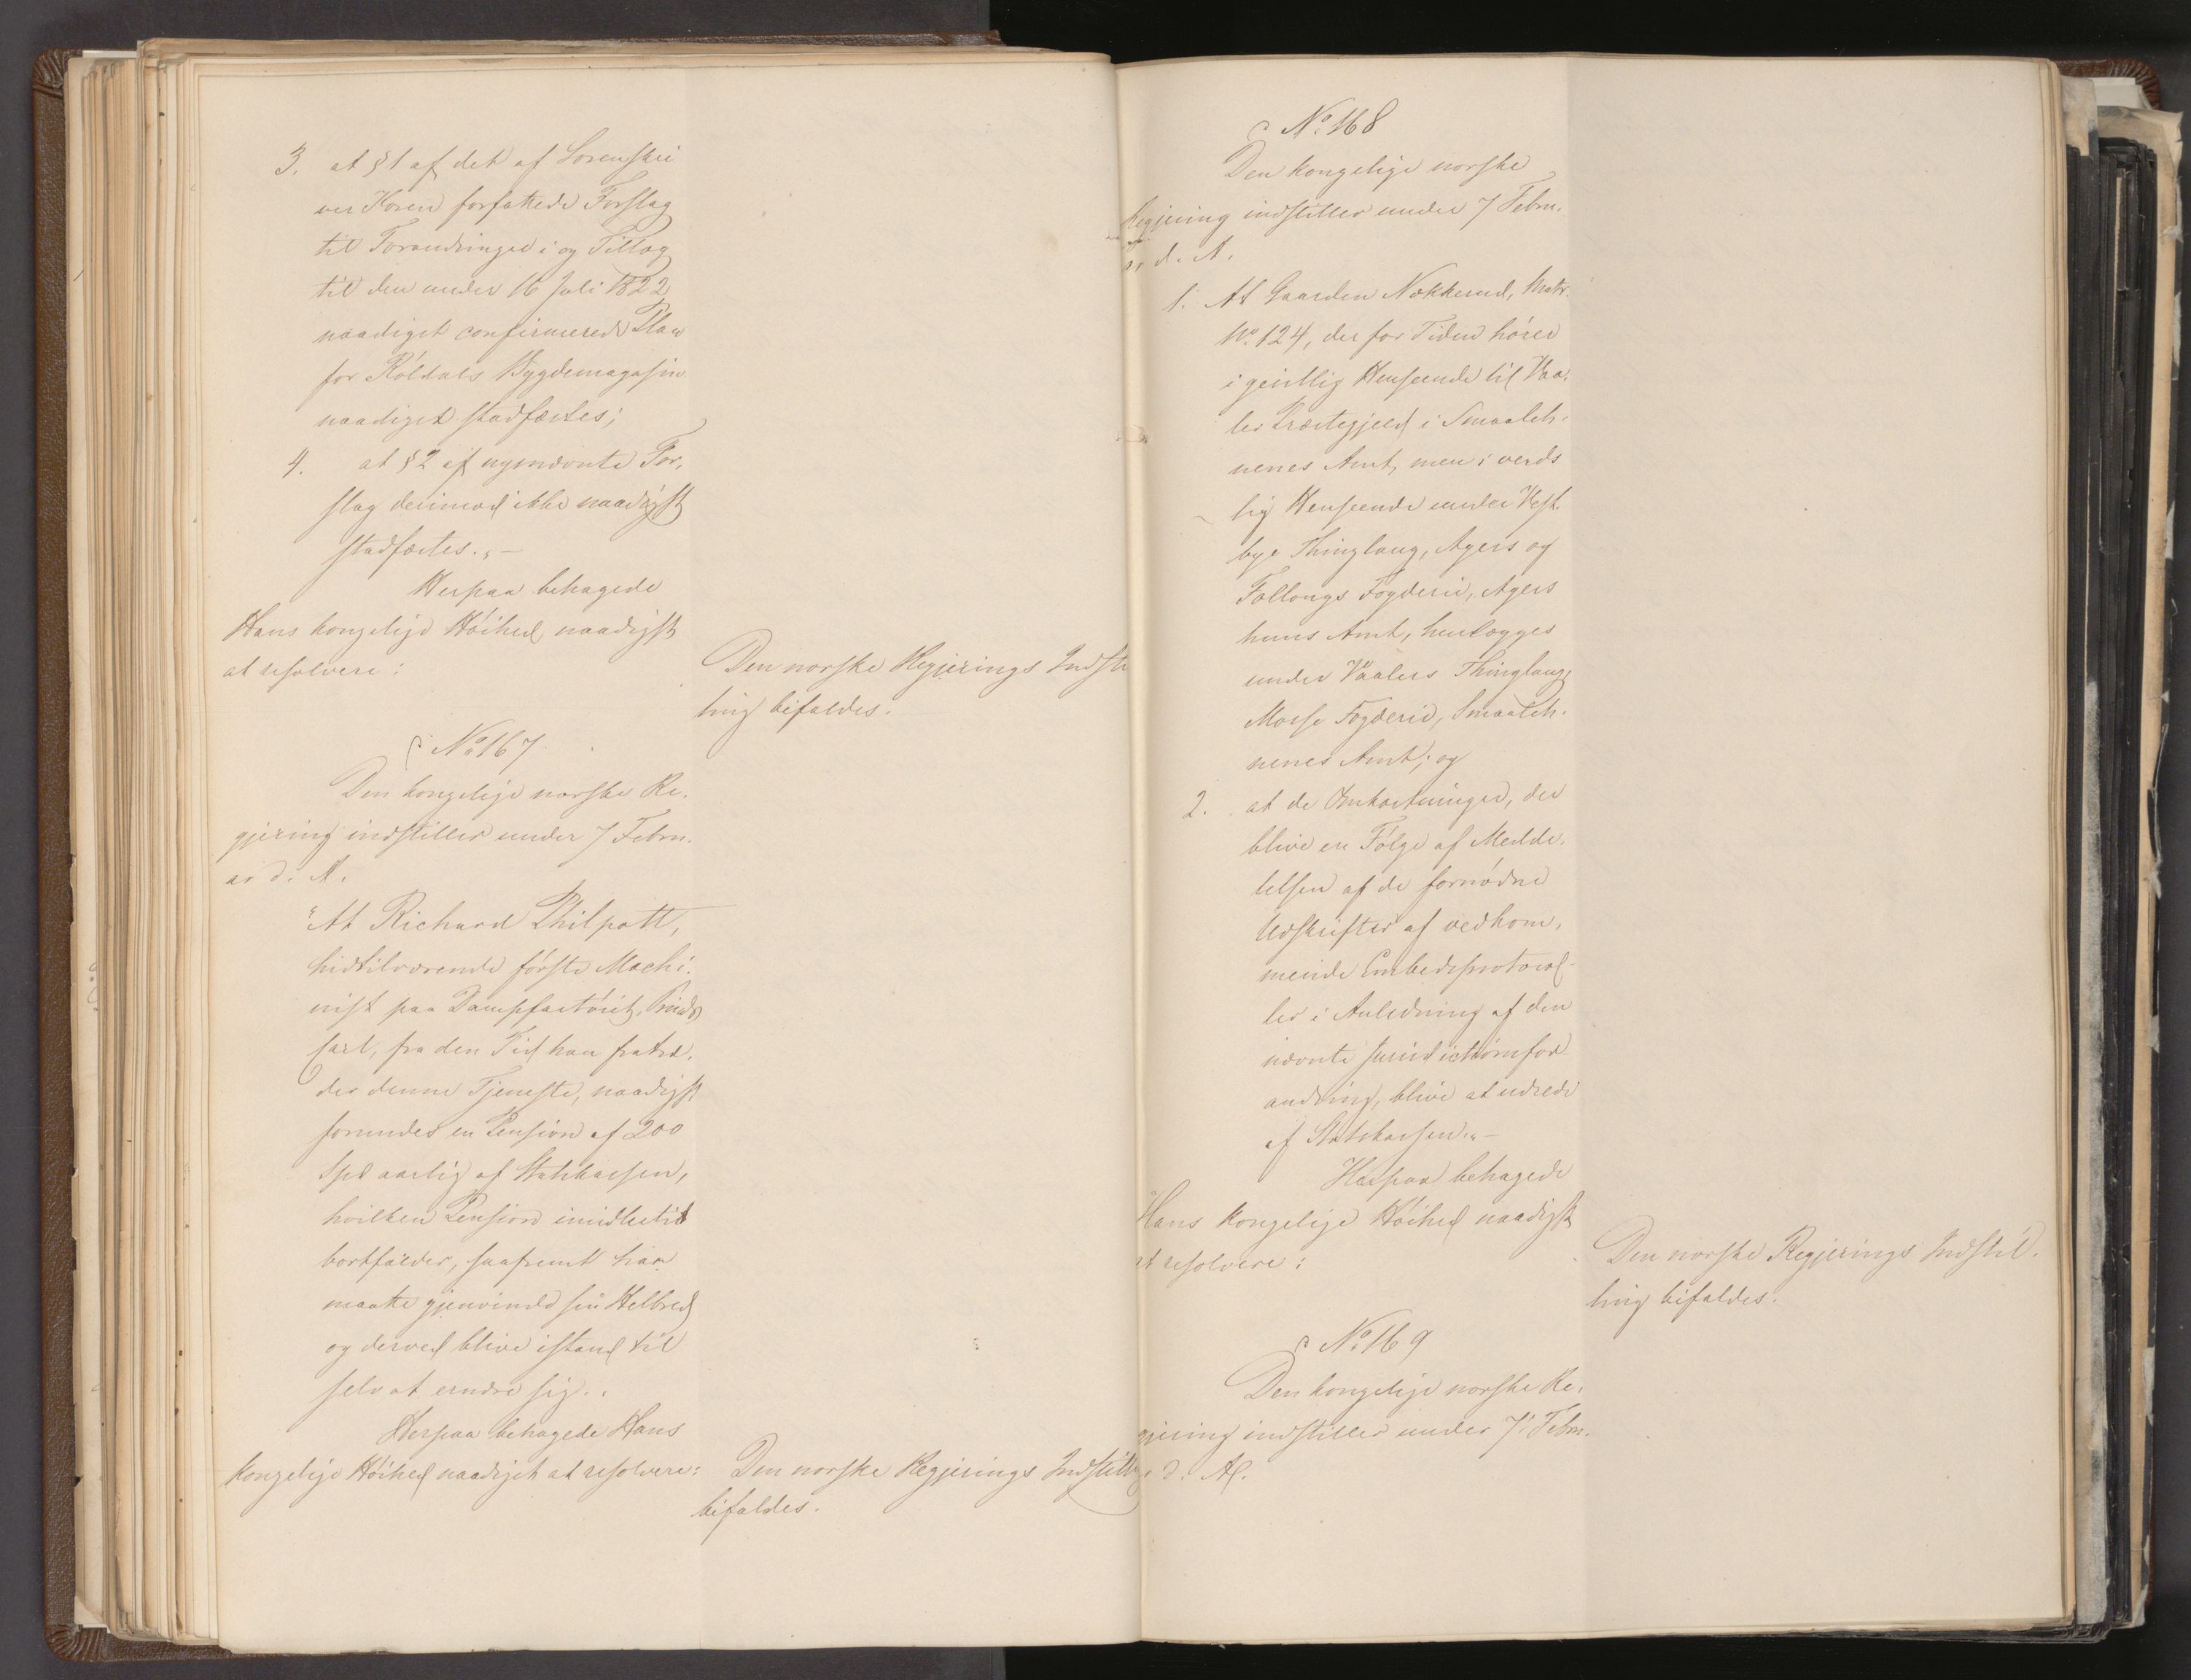 3. at § 1 af det af Sorenskri
ver Koren forfattede Forslag
til Forandringer i og Tillæg
til den under 16 Juli 1822
naadigst confirmerede Plan
for Röldals Bygdemagasin
naadigst stadfæstes;
4. at § 2 af nysnævnte For,
slag derimod ikke naadigst
stadfæstes." –
Herpaa behagede
Hans kongelige Höihed naadigst
at resolvere:
Den norske Regjerings Indstil
ling bifaldes.
No 167.
Den kongelige norske Re,
gjering indstiller under 7 Febru,
ar d. A.
"At Richard Philpott,
hidtilværende förste Machi,
nist paa Dampfartöiet, Prinds
Carl, fra den Tid han fratræ,
der denne Tjeneste, naadigst
forundes en Pension af 200
Spd aarlig af Statskassen,
hvilken Pension imidlertid
bortfalder, saafremt han
maatte gjenvinde sin Helbred
og derved blive istand til
selv at ernære sig."
Herpaa behagede Hans
kongelige Höihed naadigst at resolvere:
Den norske Regjerings Indstilling
bifaldes.
No 168
Den kongelige norske
Regjering indstiller under 7 Febru,
ar d. A.
1. At Gaarden Nøkkerud, Matr.
No. 124, der for Tiden hører
i geistlig Henseende til Vaa,
ler Præstegjeld i Smaaleh,
nenes Amt, men i verds
lig Henseende under Vest,
bye Thinglaug, Agers og
Follougs Fogderie, Agers
huus Amt, henlægges
under Vaalers Thinglaug,
Mosse Fogderie, Smaaleh,
nenes Amt; og
2. at de Omkostninger, der
blive en Fölge af Medde,
lelsen af de fornödne
Udskrifter af vedkom,
mende Embedsprotocol,
ler i Anledning af den
nævnte Jurisdictionsfor
andring, blive at udrede
af Statskassen." –
Herpaa behagede
Hans kongelige Höihed naadigst
at resolvere:
Den norske Regjerings Indstil,
ling bifaldes.
No 169
Den kongelige norske Re,
gjering indstiller under 7 Febru,
ar d. A.